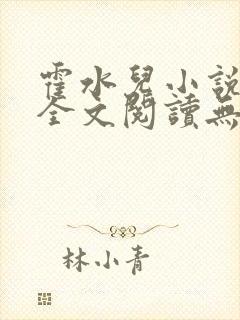 霍水兒小說
全文閱讀無
林小青